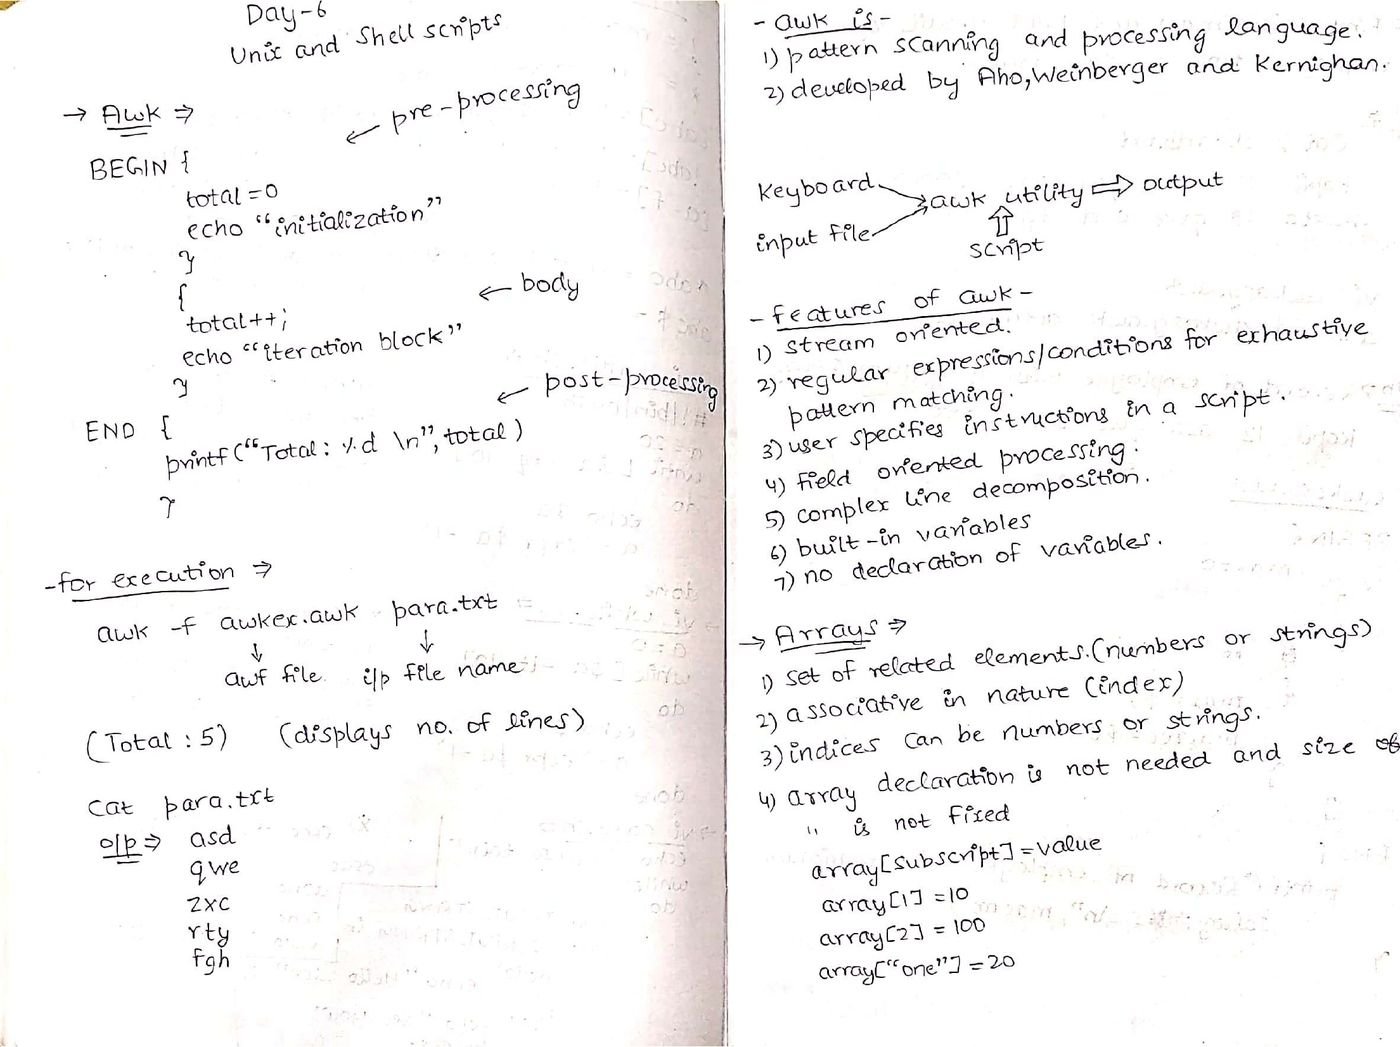 Day-6
Unix and Shell scripts
→ Awk ⇒
← pre-processing
BEGIN {
total=0
echo “initialization”
}
{
← body
total++;
echo “iteration block”
}
← post-processing
END {
printf(“Total: %d \n”, total)
}
-for execution ⇒
awk -f awkex.awk para.txt
↓ ↓
awf file. i/p file name
(Total : 5) (displays no. of lines)
cat para.txt
o/p ⇒ asd
qwe
zxc
rty
fgh
- awk is -
1) pattern scanning and processing language.
2) developed by Aho, Weinberger and Kernighan.
Keyboard
→ awk utility ⇒ output
input file
⇑
script
- features of awk -
1) stream oriented.
2) regular expressions/conditions for exhaustive
pattern matching.
3) user specifies instructions in a script.
4) field oriented processing.
5) complex line decomposition.
6) built-in variables
7) no declaration of variables.
→ Arrays ⇒
1) set of related elements.(numbers or strings)
2) associative in nature (index)
3) indices can be numbers or strings.
4) array declaration is not needed and size of
" is not fixed
array[subscript]=value
array[1] =10
array[2] = 100
array[“one”] =20